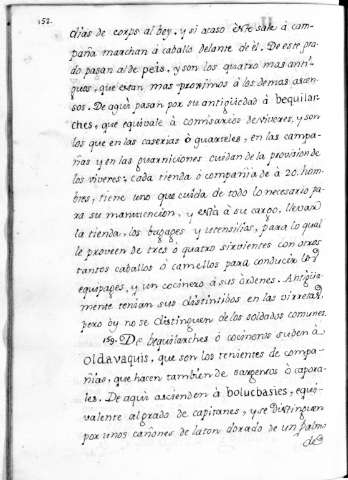 152.
dias de corps al bey, y si acaso este sale à cam-
paña marchan à caballo delante de èl. De este gra-
do pasan al de peis, y son los quatro mas anti-
guos, que estan mas proximos à los demas ascen-
sos. De aqui pasan por su antigüedad à bequilar-
ches, que equivale à comisarios de viveres, y son
los que en las caserias ò quarteles, en las campa-
ñas y en las guarniciones cuidan de la provision de
los viveres: cada tienda ò compañia de à 20. hom-
bres, tiene uno que cuida de todo lo necesario pa-
ra su manutencion, y està à su cargo, llevar
la tienda, los bagages y utensilios, para lo qual
le proveen de tres ò quatro sirvientes con otros
tantos caballos ò camellos para conducir los
equipages, y un cocinero à sus òrdenes. Antigua-
mente tenian sus distintibos en las
pero oy no se distinguen de los soldados comunes.
159. De bequilarches ò cocineros suben à
oldavaquis, que son los tenientes de compa-
ñias, que hacen tambien de sargentos ò capora-
les. De aqui ascienden à bolucbasies, equi-
valente al grado de capitanes, y se distinguen
por unos cañones de laton dorado de un palmo
de